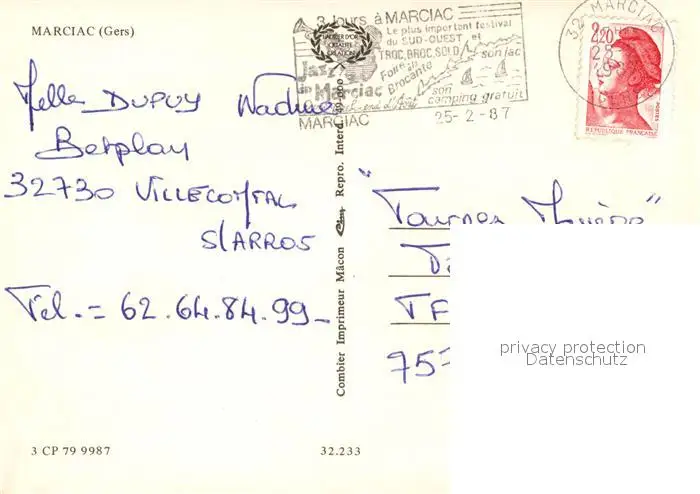 MARCIAC (Gers)
3 Jours à MARCIAC
Le plus important festival
du SUD-OUEST et
TROC, BROC, SOLD
Foire à la
Brocante
son lac
Jazz
in Marciac
son
camping gratuit
MARCIAC
25-2-87
32 MARCIAC
2,20
REPUBLIQUE FRANÇAISE
POSTES
Melle DUPUY Nadine
Betplan
32730 VILLECOMTAL
S/ARROS
Tel. = 62.64.84.99_
"Tournez
TF
75
Combier Imprimeur Mâcon Cim Repro. Interd.
privacy protection
Datenschutz
3 CP 79 9987
32.233